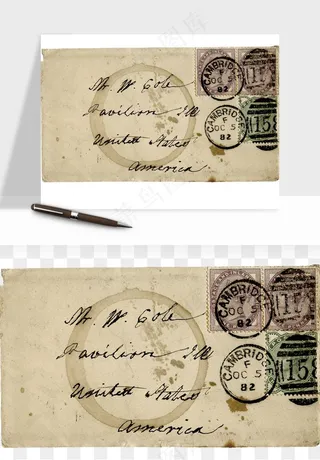 Mr. W. Cole
Pavilion Ill
United States
America
CAMBRIDGE
F
OC 5
82
CAMBRIDGE
F
OC 5
82
158
Mr. W. Cole
Pavilion Ill
United States
America
CAMBRIDGE
F
OC 5
82
CAMBRIDGE
F
OC 5
82
158